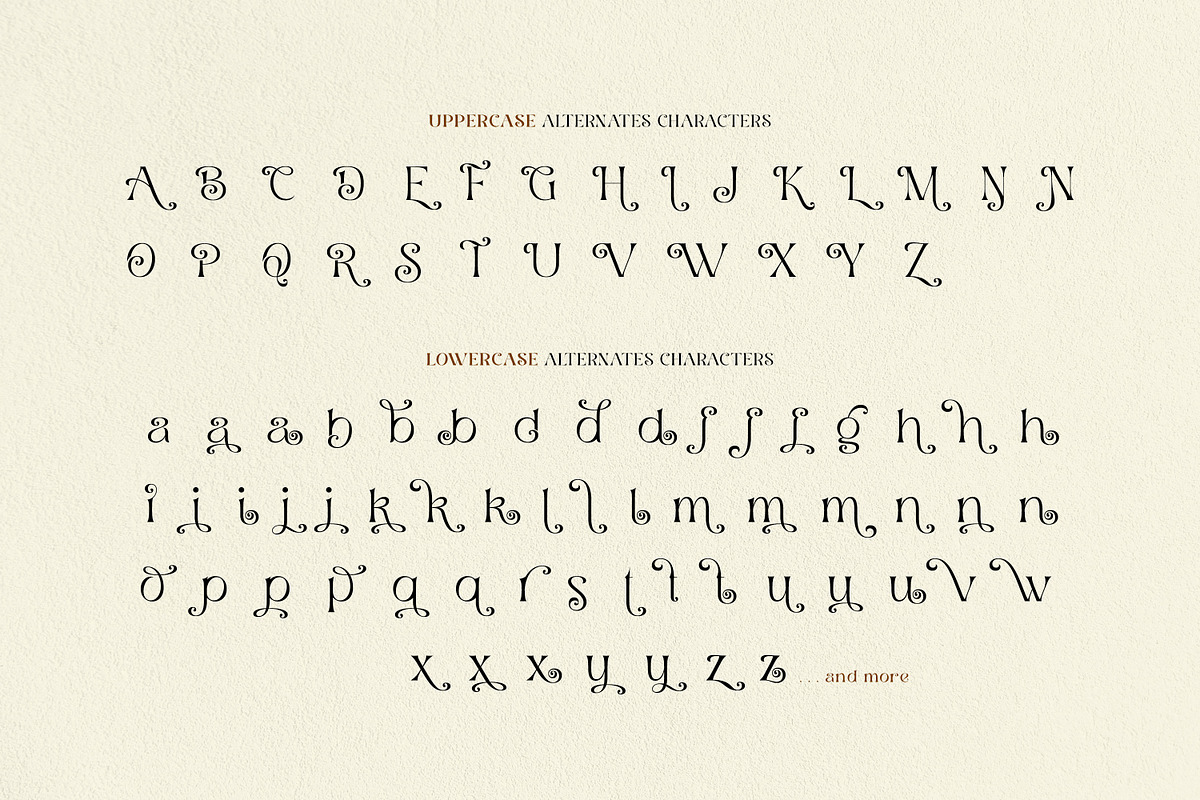 UPPERCASE ALTERNATES CHARACTERS
A B C D E F G H I J K L M N N
O P Q R S T U V W X Y Z
LOWERCASE ALTERNATES CHARACTERS
a a a b b b d d d f f f g h h h
i i i j j k k k l l l m m m n n n
o p p p q q r s t t t u u u v w
x x x y y z z ... and more